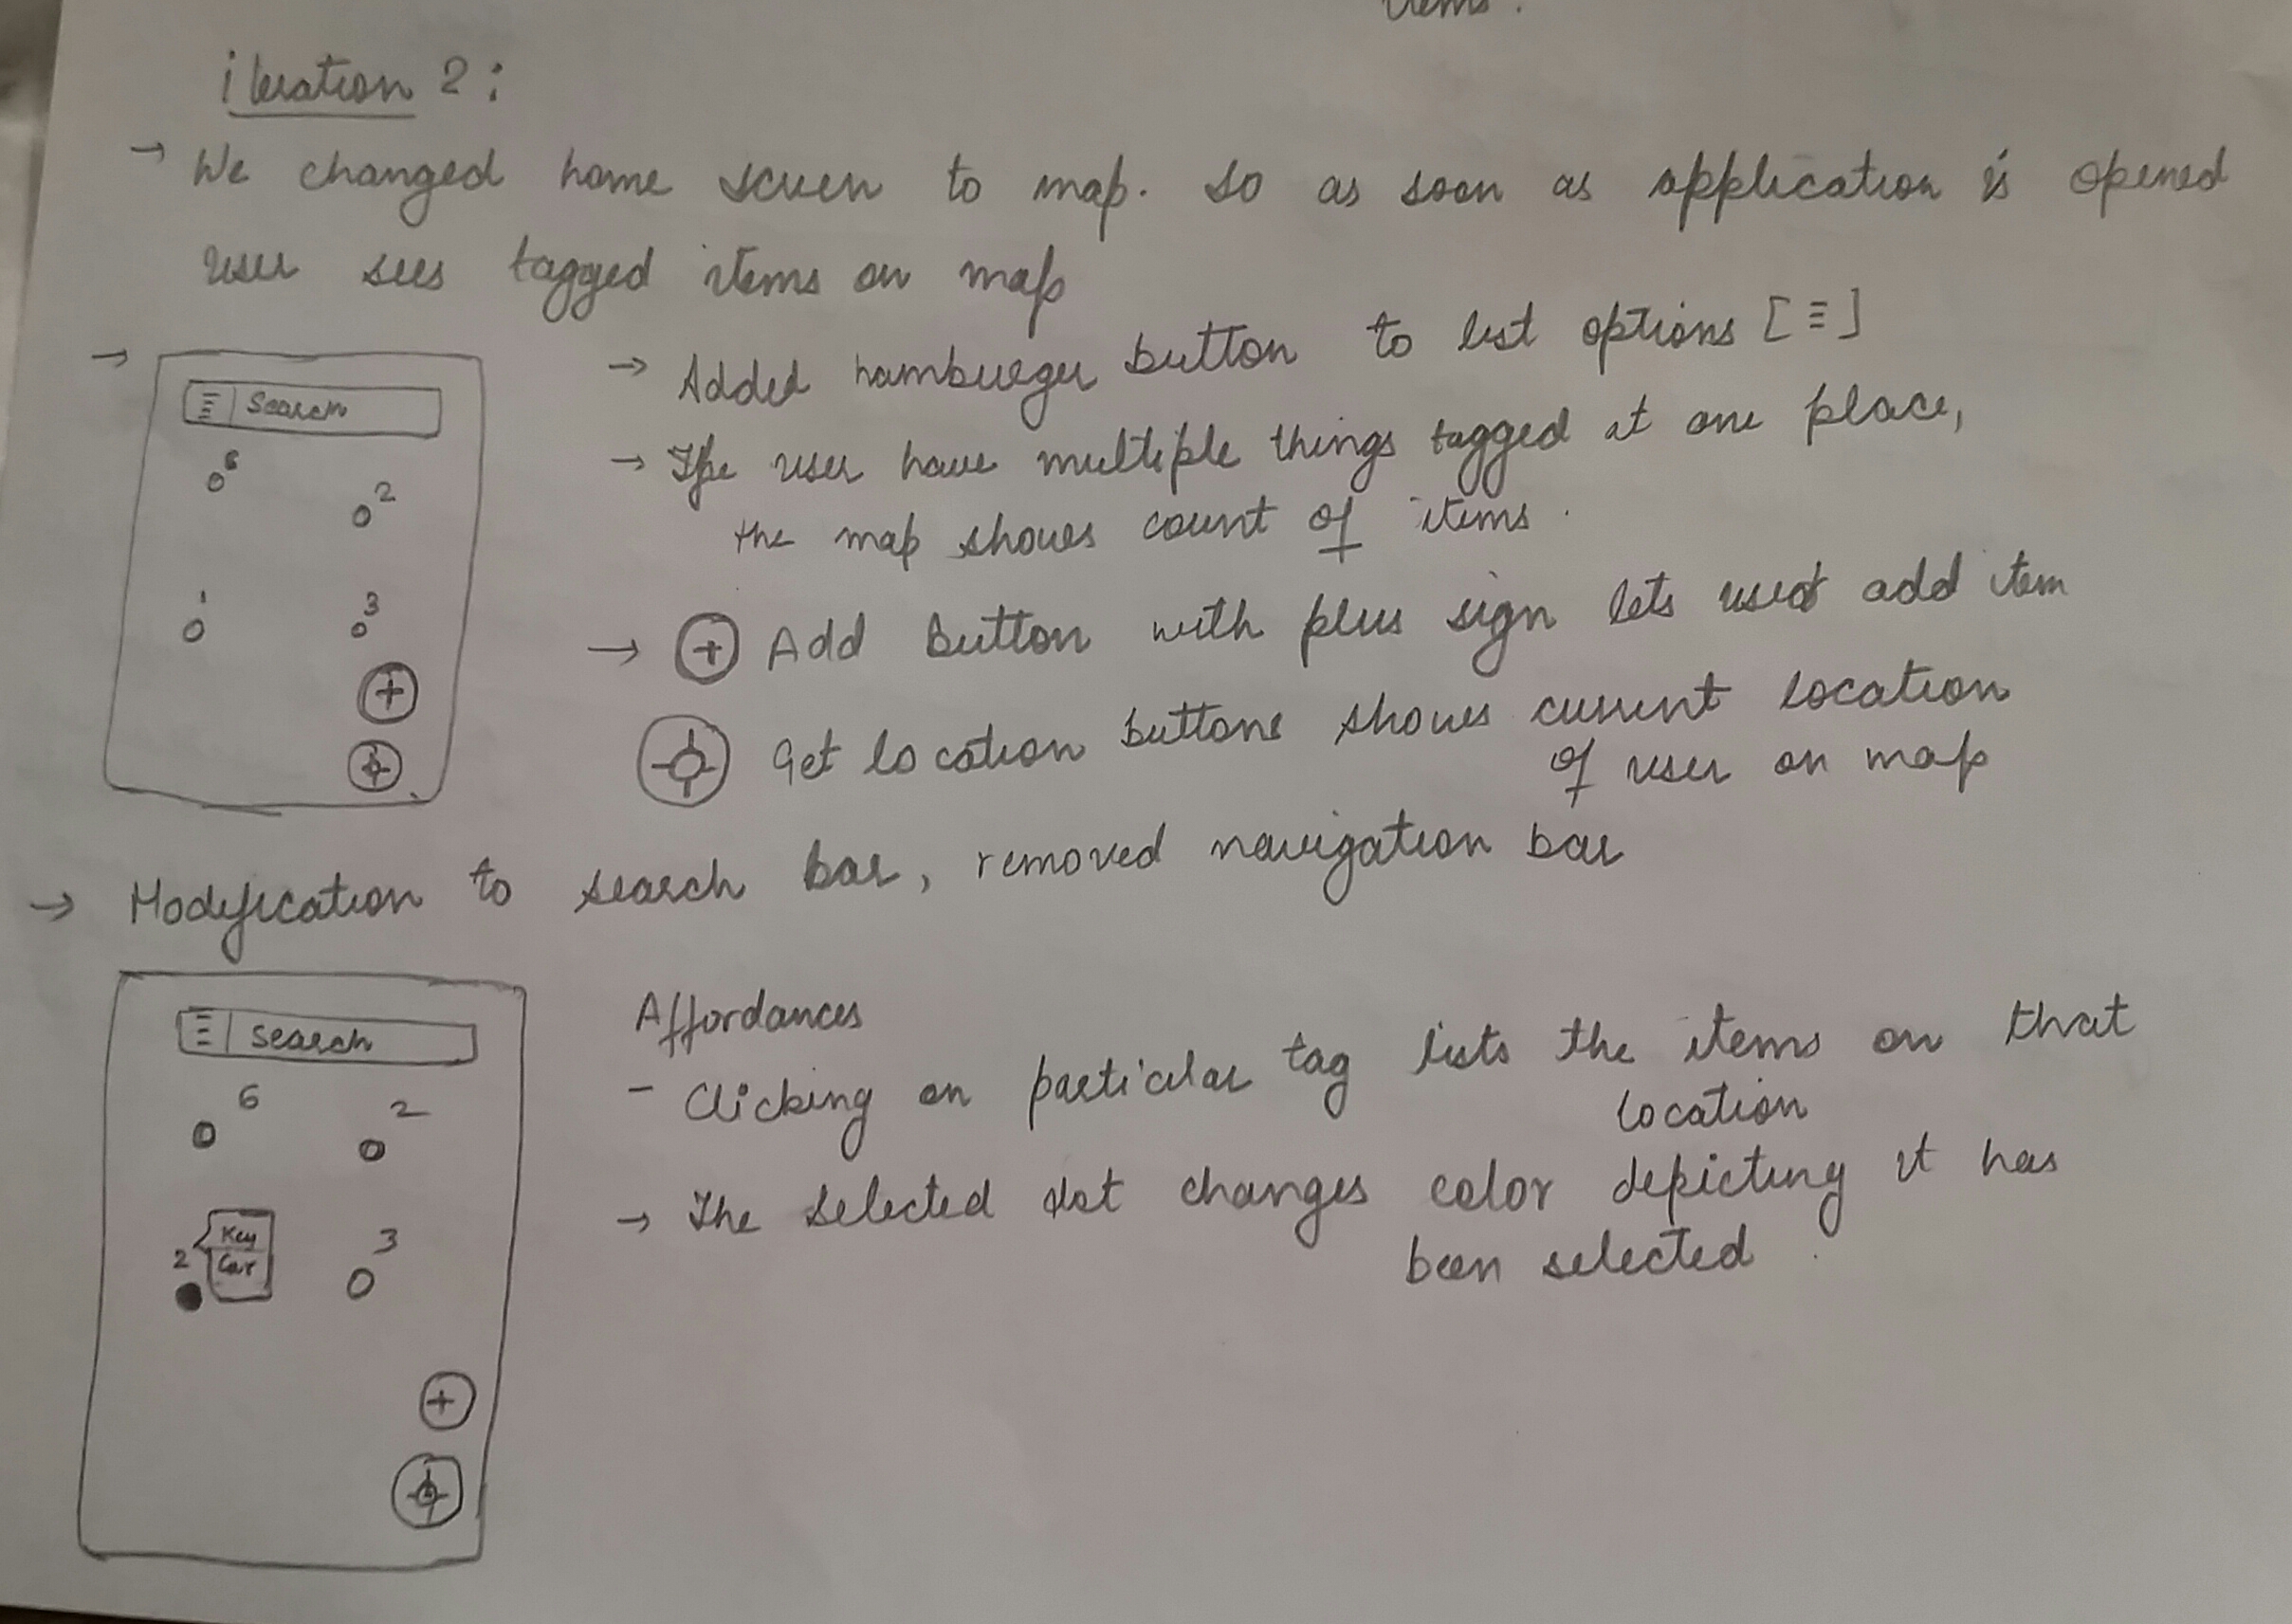 items.
iteration 2:
→ We changed home screen to map. so as soon as application is opened
user sees tagged items on map
→
≡ Search
6
2
1
3
+
→ Added hamburger button to list options [≡]
→ If user have multiple things tagged at one place,
the map shows count of items.
→ + Add button with plus sign lets user add item
Get location buttons shows current location
of user on map
→ Modification to search bar, removed navigation bar
≡ search
6
2
Key
Car
2
3
+
Affordances
- Clicking on particular tag lists the items on that
location
→ The selected dot changes color depicting it has
been selected.